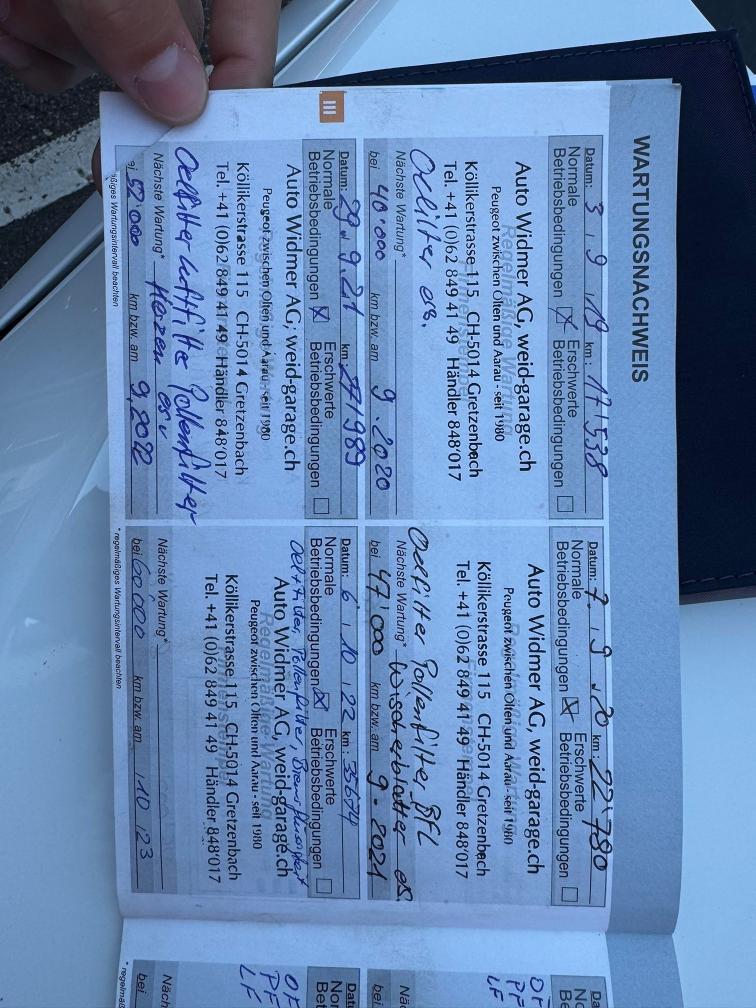 WARTUNGSNACHWEIS
Datum: 3.9.19 km: 17'538
Normale Betriebsbedingungen X Erschwerte Betriebsbedingungen
Regelmäßige Wartung
Auto Widmer AG, weid-garage.ch
Peugeot zwischen Olten und Aarau - seit 1980
Köllikerstrasse 115 CH-5014 Gretzenbach
Tel. +41 (0)62 849 41 49 Händler 848'017
Oelfilter ers.
Nächste Wartung*
bei 40'000 km bzw. am 9.2020
Datum: 7.9.20 km: 22'780
Normale Betriebsbedingungen X Erschwerte Betriebsbedingungen
Auto Widmer AG, weid-garage.ch
Peugeot zwischen Olten und Aarau - seit 1980
Köllikerstrasse 115 CH-5014 Gretzenbach
Tel. +41 (0)62 849 41 49 Händler 848'017
Oelfilter Pollenfilter BFL
Wischerblätter es.
Nächste Wartung*
bei 47'000 km bzw. am 9.2021
III
Datum: 29.9.21 km: 27'989
Normale Betriebsbedingungen X Erschwerte Betriebsbedingungen
Auto Widmer AG; weid-garage.ch
Peugeot zwischen Olten und Aarau - seit 1980
Köllikerstrasse 115 CH-5014 Gretzenbach
Tel. +41 (0)62 849 41 49 Händler 848'017
Oelfilter Luftfilter Pollenfilter
Nächste Wartung*
52'000 km bzw. am 9.2022
Wartungsintervall beachten
Datum: 6.10.22 km: 35674
Normale Betriebsbedingungen X Erschwerte Betriebsbedingungen
Oelfilter, Pollenfilter, Bremsflüssigkeit
Regelmäßige Wartung
Auto Widmer AG, weid-garage.ch
Peugeot zwischen Olten und Aarau - seit 1980
Köllikerstrasse 115 CH-5014 Gretzenbach
Tel. +41 (0)62 849 41 49 Händler 848'017
Nächste Wartung*
bei 60'000 km bzw. am 10 23
* regelmäßiges Wartungsintervall beachten
PF
LF
PF
LF
bei